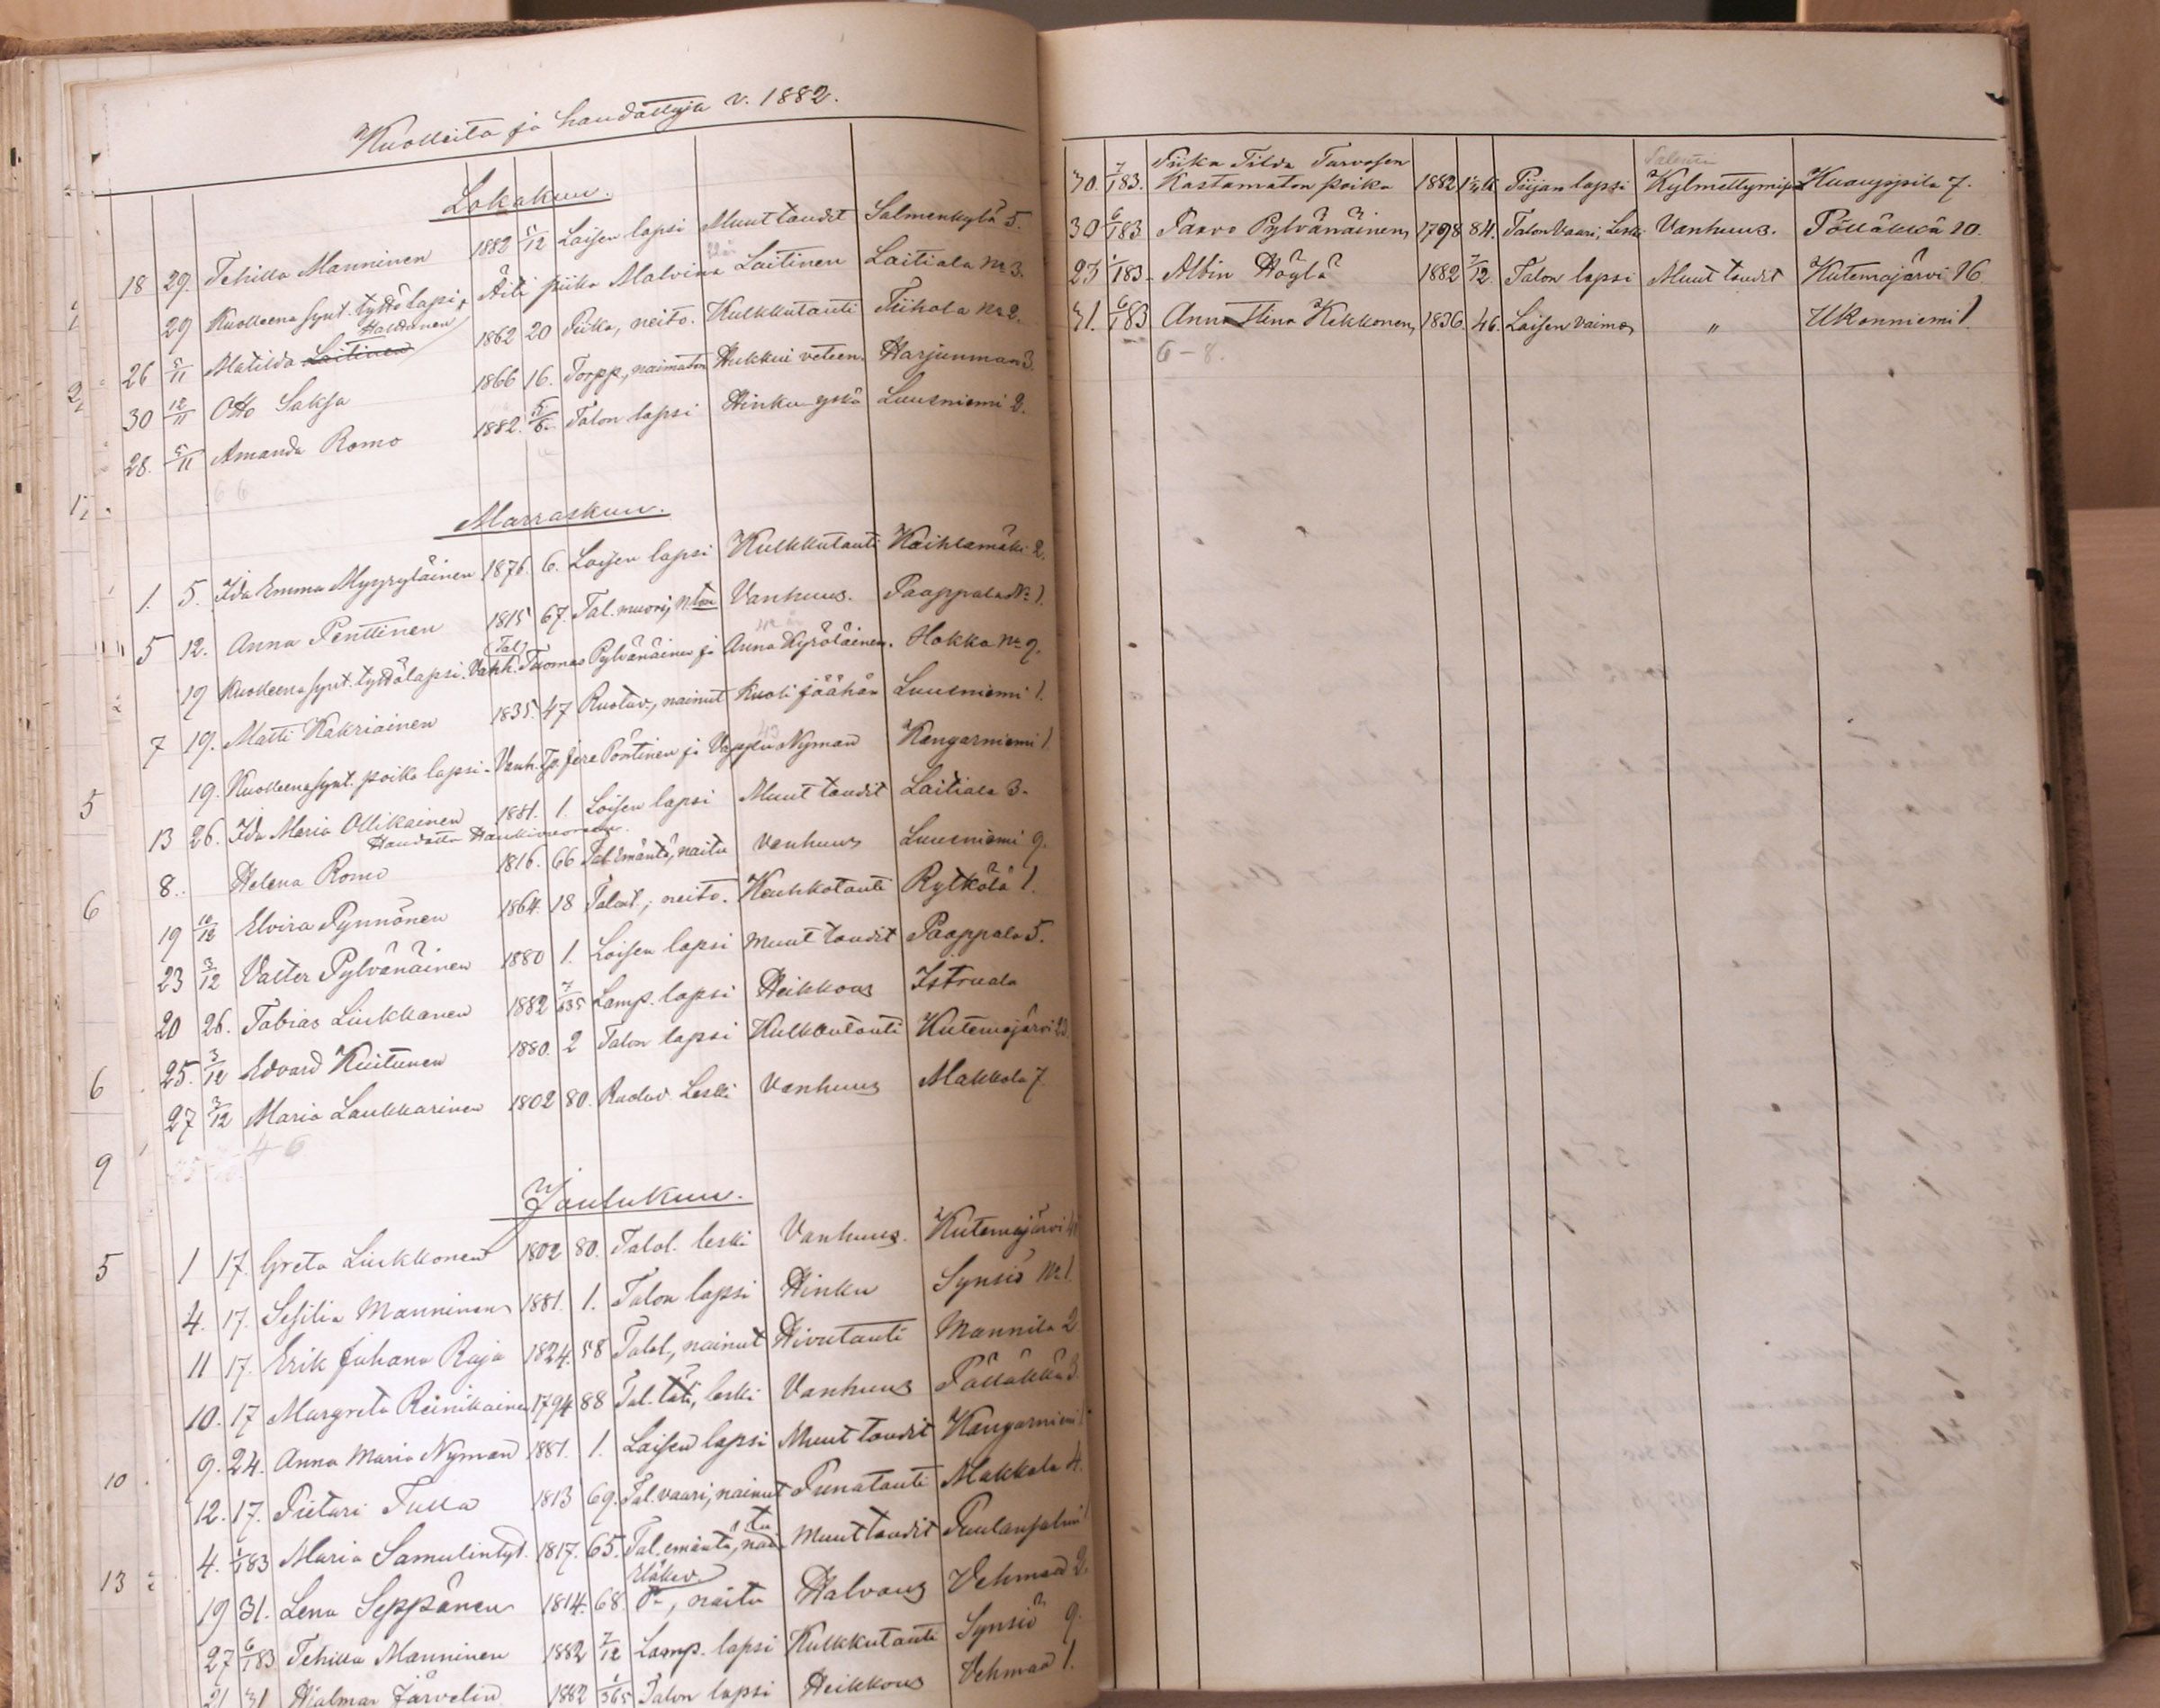 Kuolleita ja haudattuja v. 1882.
Lokakuu.
18 29. Tehilla Manninen 1882 5/12 Loisen lapsi Muut taudit Salmenkylä 5.
29 Kuolleena synt. tyttölapsi, Äiti piika Malvina Laitinen Laitiala No 3.
Halttunen
26 5/11 Matilda Laitinen 1862 20 Piika, neito. Kulkkutauti Tiihola No 2.
30 12/11 Otto Saksa 1866 16. Torpp., naimaton Hukkui veteen. Harjunmaa 3.
28. 5/11 Amanda Romo 1882. Talon lapsi Hinku yskä Luusniemi 2.
66
Marraskuu.
1. 5. Ida Emma Myyryläinen 1876. 6. Loisen lapsi Kulkkutauti Kaihlamäki 2.
5 12. Anna Penttinen 1815 67. Tal. muori, Vanhuus. Paappala No 1.
(Tal)
19 Kuolleena synt. tyttölapsi. Vanh. Tuomas Pylvänäinen ja Anna Kyröläinen. Hokka No 9.
7 19. Matti Kakriainen 1835. 47 Ruotuv., nainut Kuoli jäähän Luusniemi 1.
19. Kuolleena synt. poika lapsi. Vanh. Pöntinen ja Vappu Nyman Kangasniemi 1
13 26. Ida Maria Ollikainen 1881. 1. Loisen lapsi Muut taudit Laitiala 3.
Haudattu Haukivuoreen.
8. Helena Romo 1816. 66 Tal. emäntä, naitu Vanhuus Luusniemi 9.
19 10/12 Elvira Pynnönen 1864. 18 Talont., neito. Keuhkotauti Rytkölä 1.
23 3/12 Valter Pylvänäinen 1880 1. Loisen lapsi Muut taudit Paappala 5.
20 26. Tobias Liukkonen 1882 Lamp. lapsi Heikkous Istruala
25. 3/12 Edvard Kuitunen 1880. 2 Talon lapsi Kulkkutauti Kutemajärvi 23.
27 3/12 Maria Laukkarinen 1802 80. Ruotuv. Leski Vanhuus Makkola 7.
4-6
Joulukuu.
1 17. Greta Liukkonen 1802 80. Talol. leski Vanhuus. Kutemajärvi
4. 17. Sesilia Manninen 1881. 1. Talon lapsi Hinku Synsiö No 1.
11 17. Erik Juhana Raja 1824. 58 Talol., nainut Hivutauti Mannila 2
10. 17 Margreta Reinikainen 1794 88 Tal. täti, leski Vanhuus Pölläkkä 3.
9. 24. Anna Maria Nyman 1881. 1. Loisen lapsi Muut taudit Kangasniemi 1
12. 17. Pietari Tulla 1813 69. Tal. vaari, nainut Punatauti Makkola 4.
4. 1/1 83 Maria Samulintyt. 1817. 65. Tal. emäntä, naitu Muut taudit Puulansalmi 1
19 31. Lena Seppänen 1814. 68. naitu Halvaus Vehmaa 2.
27 6/1 83 Tehilla Manninen 1882 7/12 Lamp. lapsi Kulkkutauti Synsiö 9.
21 31 Hjalmar Järvelin 1882 1/365 Talon lapsi Heikkous Vehmaa 1.
Piika Tilda Tarvosen
30. 7/1 83. Kastamaton poika 1882 Piijan lapsi Kylmettymys Kuuyypila 7.
30 6/1 83 Paavo Pylvänäinen, 1798 84. Talon Vaari, Leski Vanhuus. Pölläkkä 10.
23 1/1 83. Albin Höglä 1882 7/12. Talon lapsi Muut taudit Kutemajärvi 16
31. 6/1 83 Anna Stina Kekkonen, 1836. 46. Loisen vaimo, " Ukonniemi 1.
6-8.